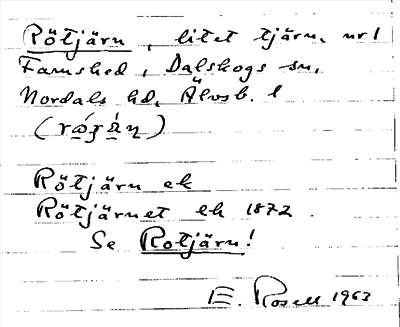 Rötjärn, litet tjärn, nr 1
Famshed, Dalskogs sn,
Nordals hd, Älvsb. l
Rötjärn ek
Rötjärnet ek 1872.
Se Rotjärn!
E. Rosell 1963